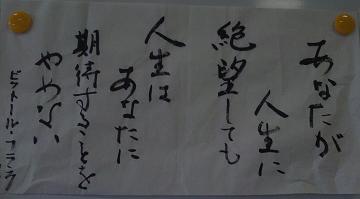 あなたが
人生に
絶望しても
人生は
あなたに
期待することを
やめない
ビクトール・フランクル